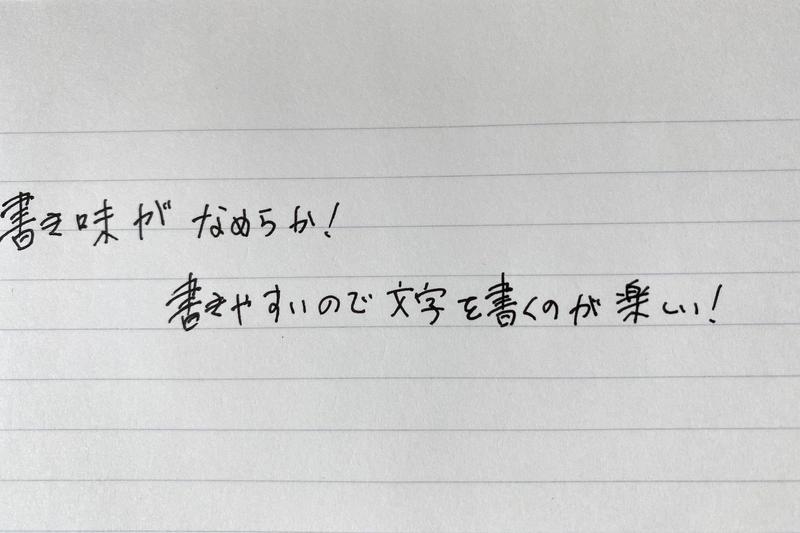 書き味がなめらか！
書きやすいので文字を書くのが楽しい！